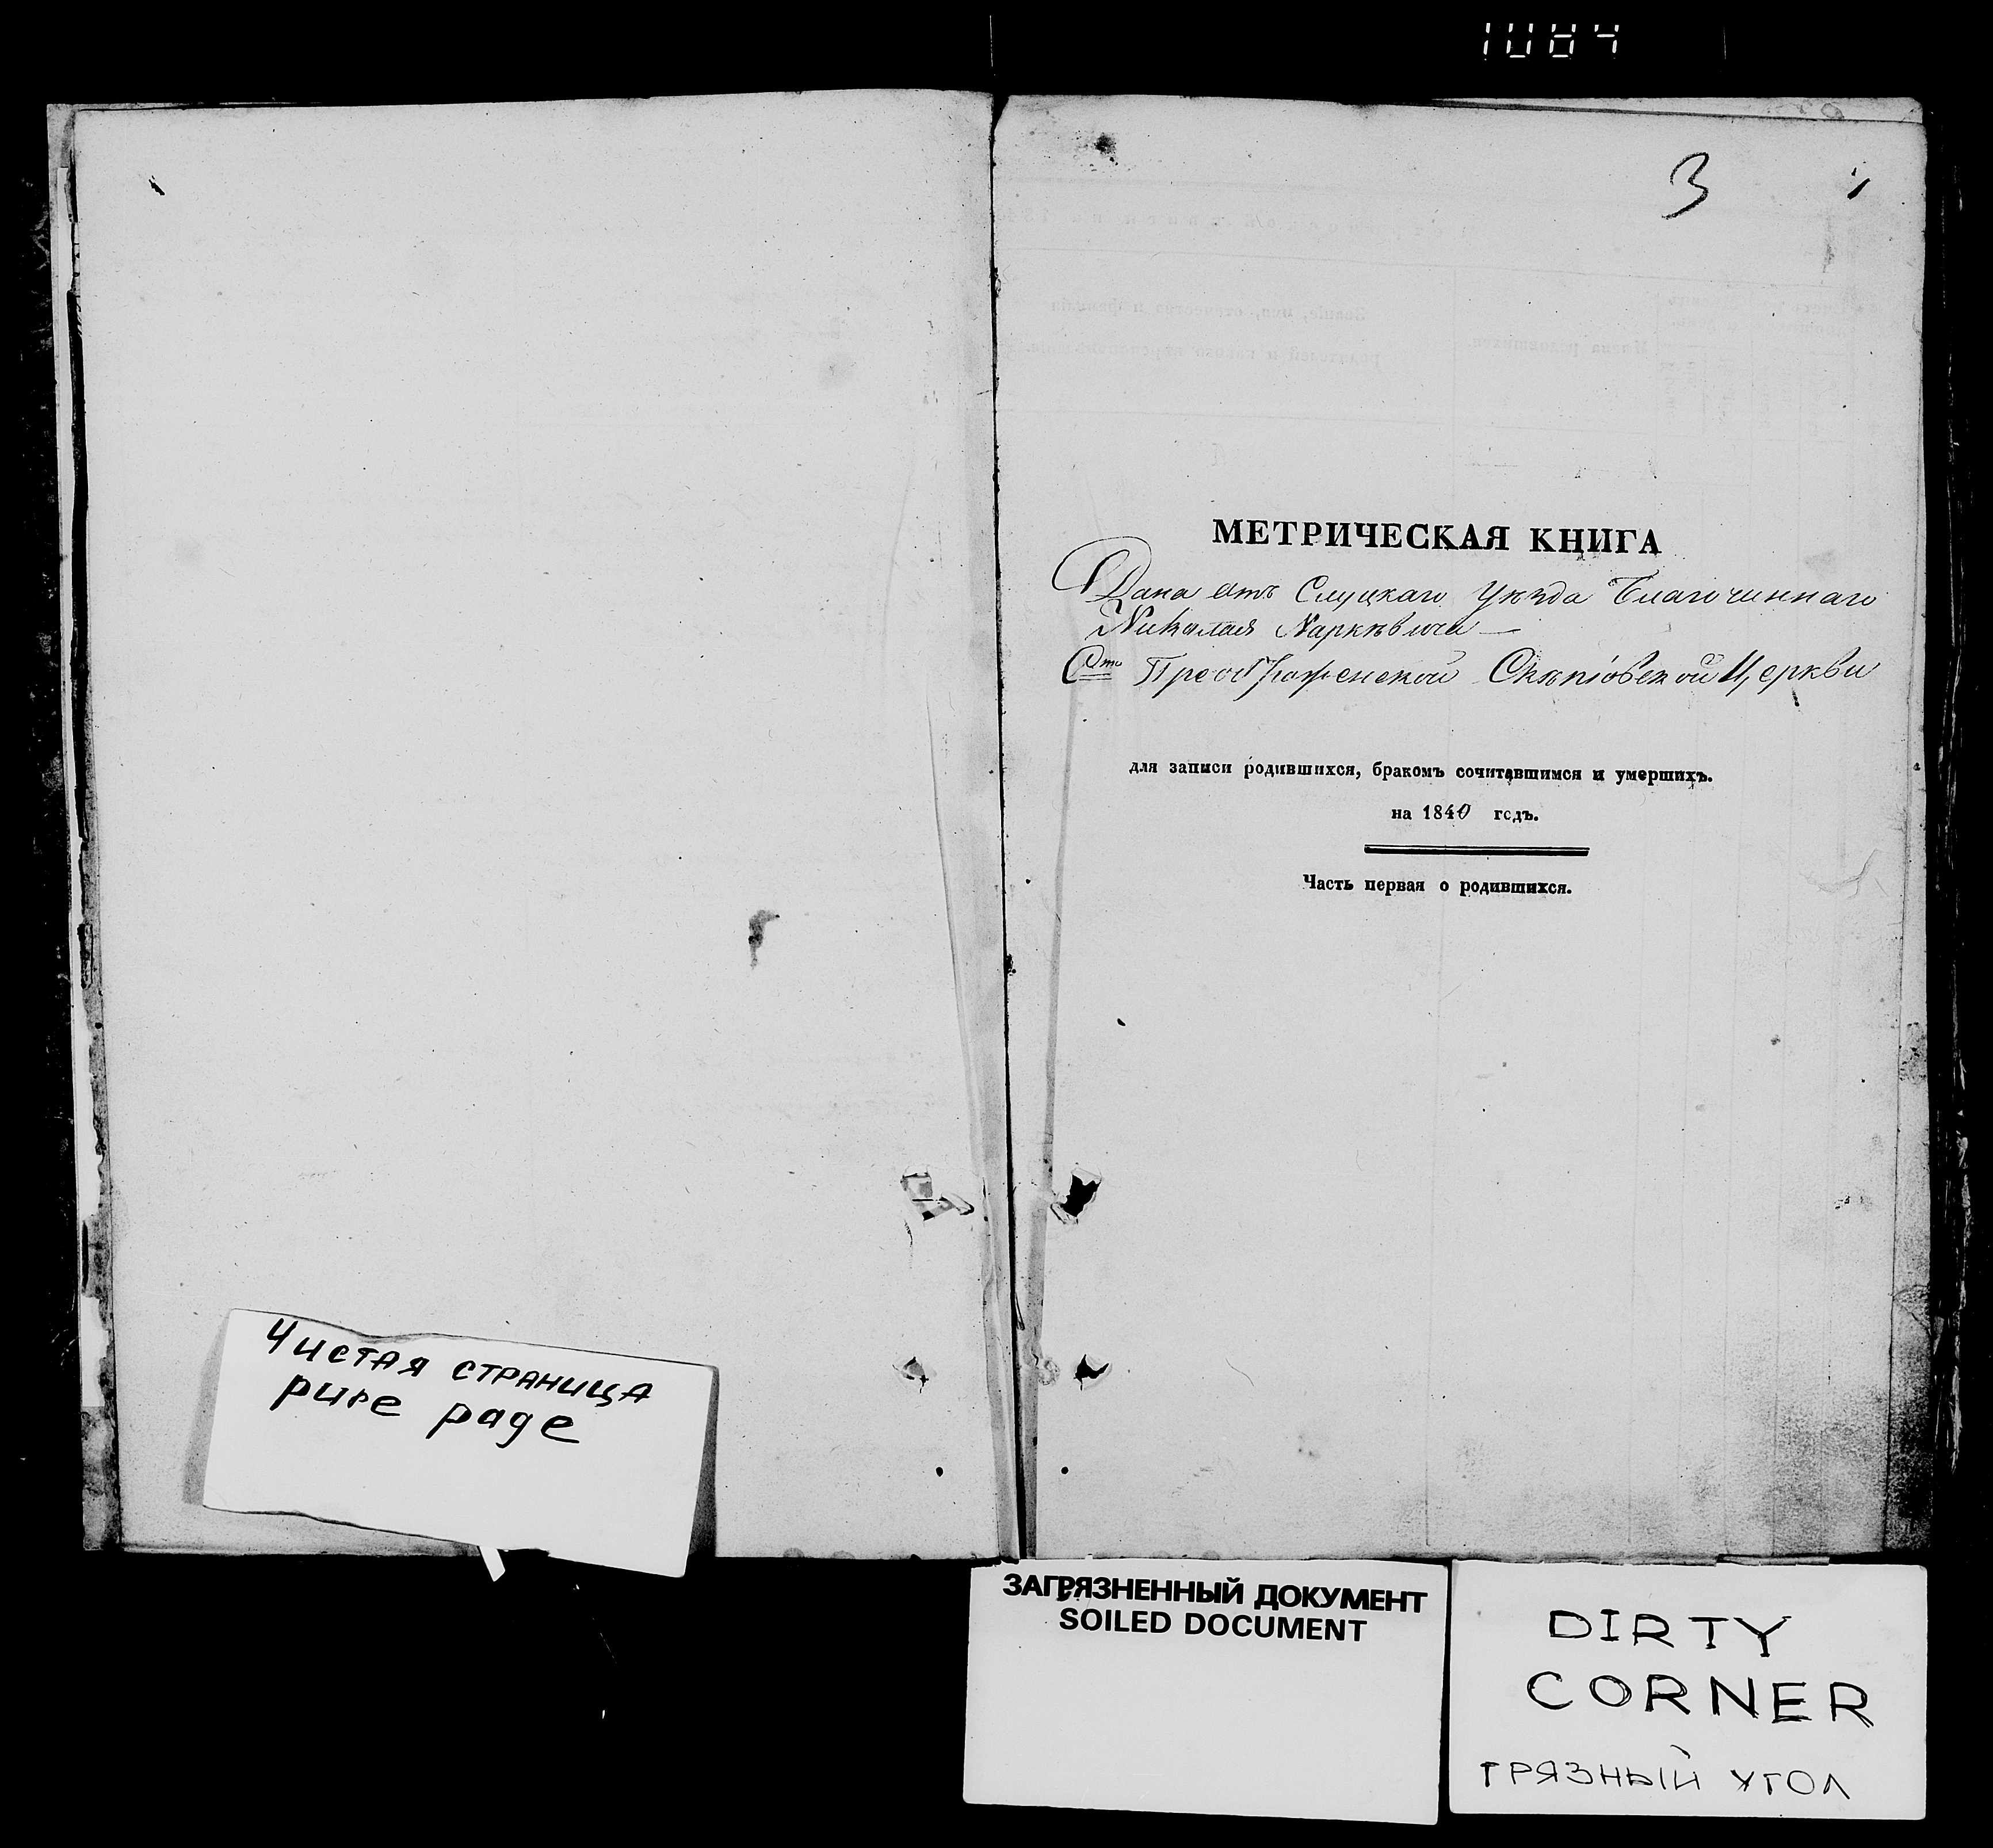 1084
3
МЕТРИЧЕСКАЯ КНИГА
Дана отъ Слуцкаго Уѣзда Благочиннаго
Николая Наркѣвича —
От Преображенской Церкви
для записи родившихся, бракомъ сочитавшимся и умершихъ.
на 1840 годъ.
Часть первая о родившихся.
Чистая страница
pure page
ЗАГРЯЗНЕННЫЙ ДОКУМЕНТ
SOILED DOCUMENT
DIRTY
CORNER
ГРЯЗНЫЙ УГОЛ